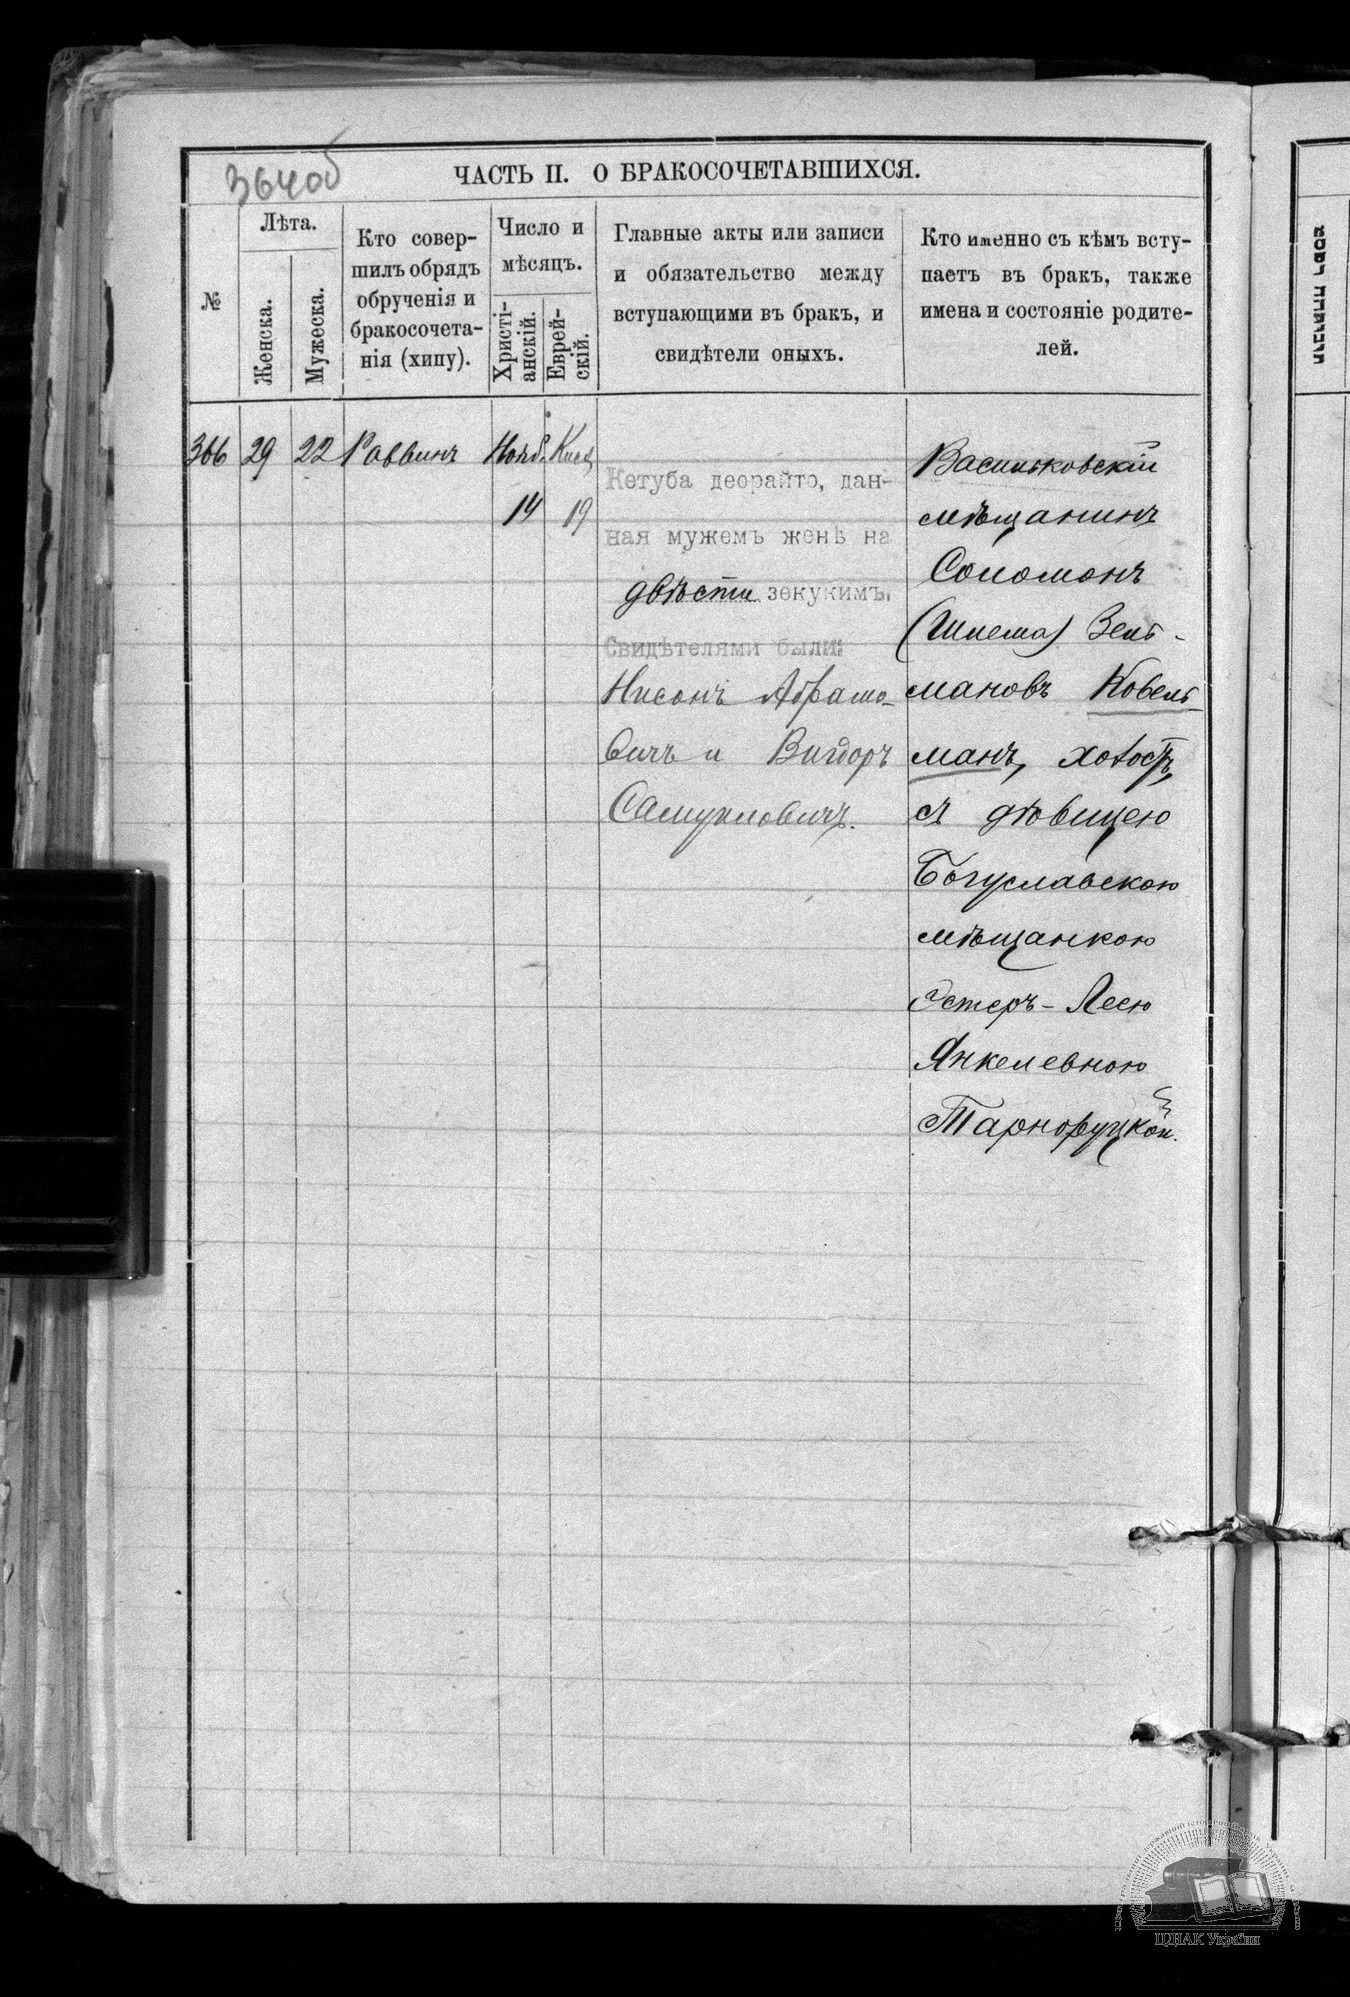 364об
ЧАСТЬ II. О БРАКОСОЧЕТАВШИХСЯ.
№
Лѣта.
Женска.
Мужеска.
Кто совер-
шилъ обрядъ
обрученія и
бракосочета-
нія (хипу).
Число и
мѣсяцъ.
Христі-
анскій.
Еврей-
скій.
Главные акты или записи
и обязательство между
вступающими въ бракъ, и
свидѣтели оныхъ.
Кто именно съ кѣмъ всту-
паетъ въ бракъ, также
имена и состояніе родите-
лей.
366 29 22 Раввинъ Нояб. Кисл
14 19
Кетуба деорайто, дан-
ная мужемъ женѣ на
двѣсти зекукимъ.
Свидѣтелями были:
Нисонъ Абрамо-
вичъ и Вигдоръ
Самуиловичъ.
Васильковскій
мѣщанинъ
Соломонъ
(Шлема) Зель-
мановъ Ковель-
манъ, холостъ,
съ дѣвицею
Богуславскою
мѣщанкою
Эстеръ-Леею
Янкелевною
Тарноруцкой.
ЦДІАК України